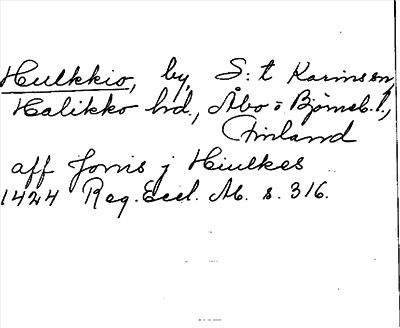 Hulkkio, by, S:t Karins sn,
Halikko hd., Åbo o Björneb. l.,
Finland
aff Jonis j Hiulkes
1424 Reg. Eccl. Ab. s. 316.